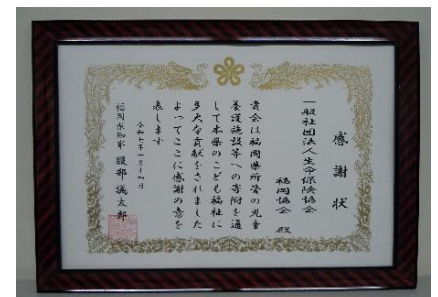 感謝状
一般社団法人生命保険協会
福岡協会 殿
貴会は福岡県所管の児童
養護施設等への寄附を通
して本県のこども福祉に
多大な貢献をされました
よってここに感謝の意を
表します
令和七年一月十四日
福岡県知事 服部誠太郎